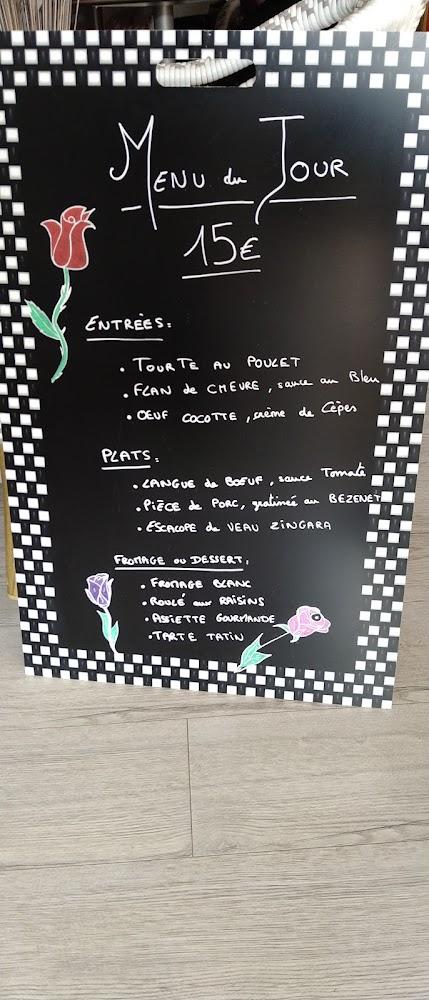 MENU du JOUR
15€
ENTRÉES:
• TOURTE AU POULET
• FLAN de CHEVRE, sauce au Bleu
• OEUF COCOTTE, crème de Cêpes
PLATS:
• LANGUE de BOEUF, sauce Tomate
• PIÈCE de PORC, gratinée au BEZENET
• ESCALOPE de VEAU ZINGARA
FROMAGE ou DESSERT:
• FROMAGE BLANC
• ROULÉ aux RAISINS
• ASSIETTE GOURMANDE
• TARTE TATIN